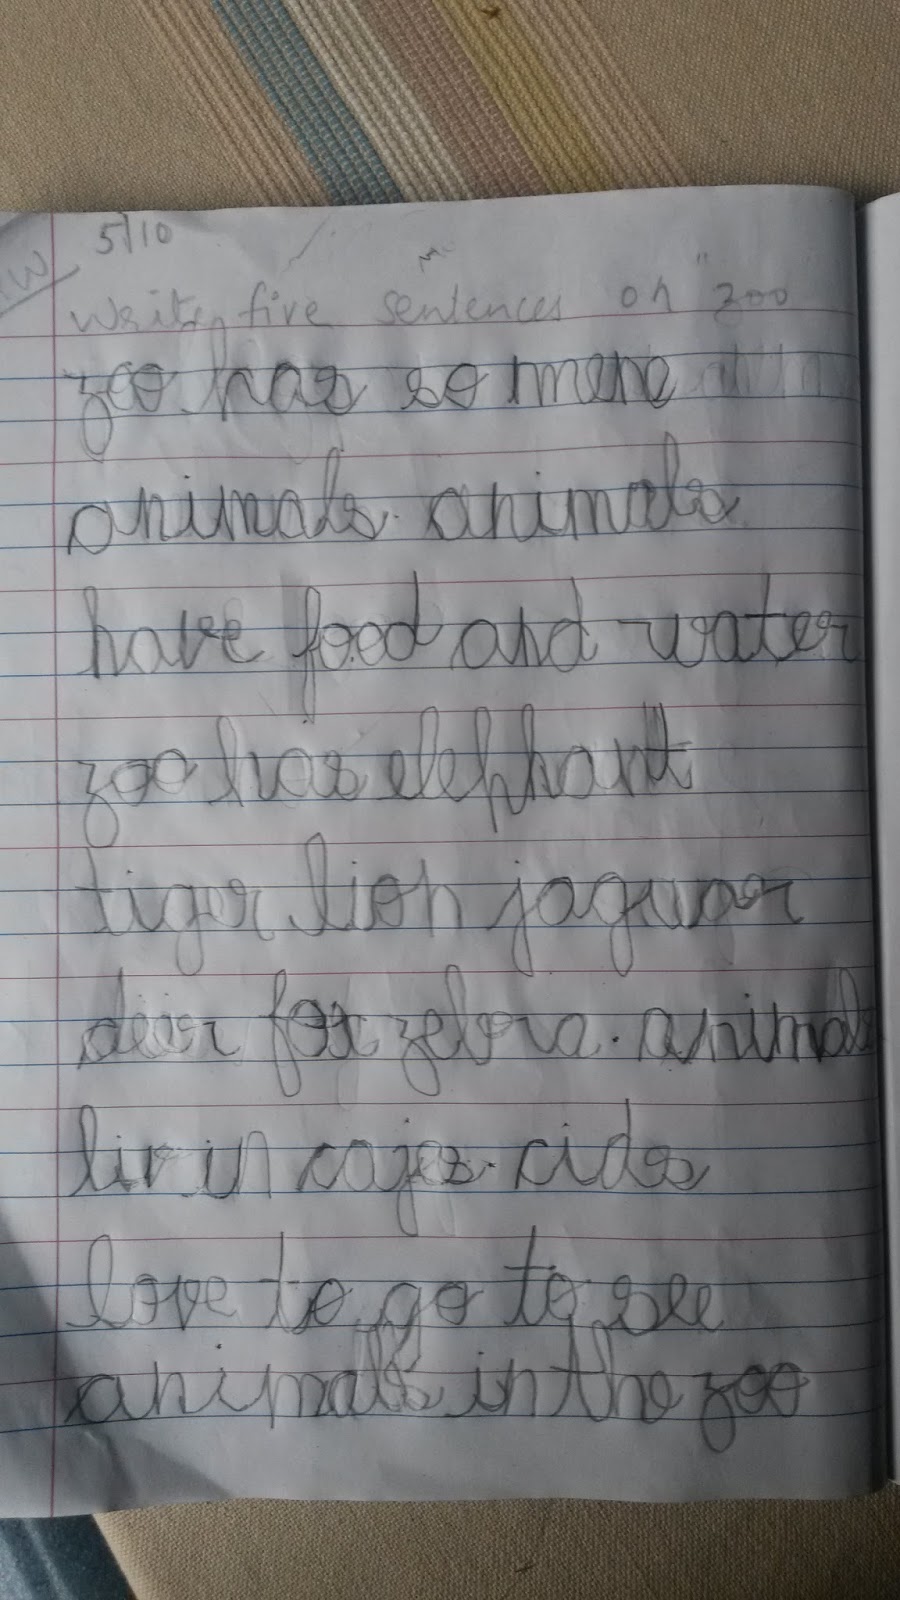 5/10
Write five sentences on "zoo
zoo has so mene
animals. animals
have food and water
zoo has elephant
tiger lion jaguar
deer fox zebra. animals
liv in cajes. cids
love to go to see
animals in the zoo